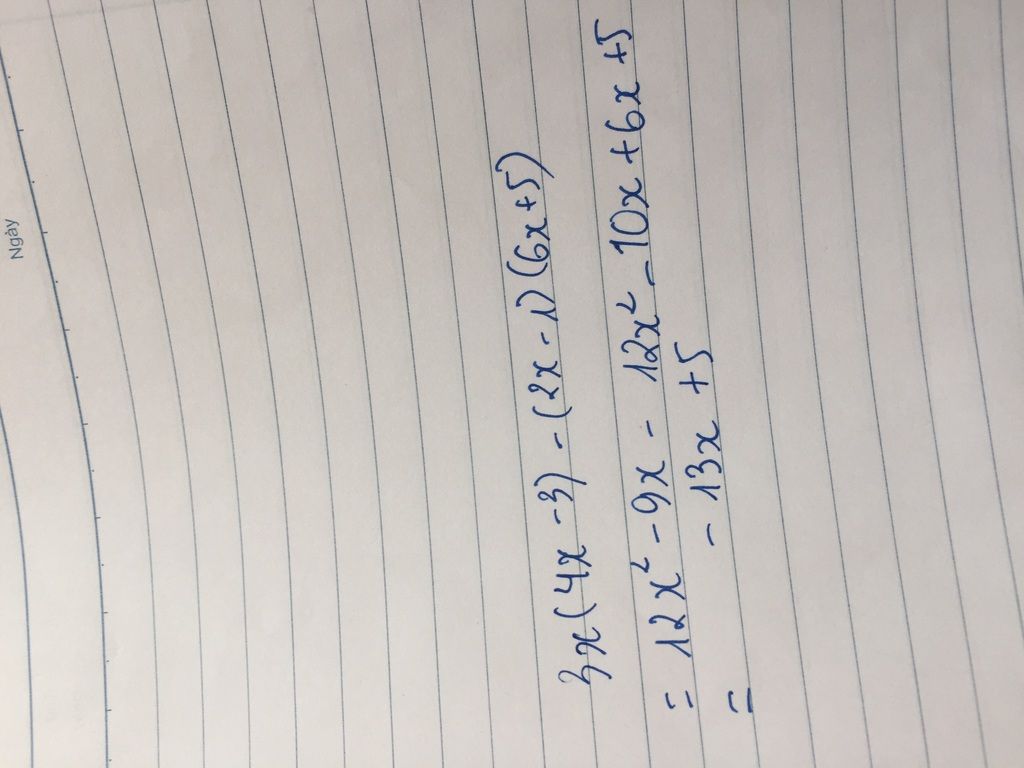 Ngày
3x(4x - 3) - (2x - 1)(6x + 5)
= 12x² - 9x - 12x² - 10x + 6x + 5
= - 13x + 5